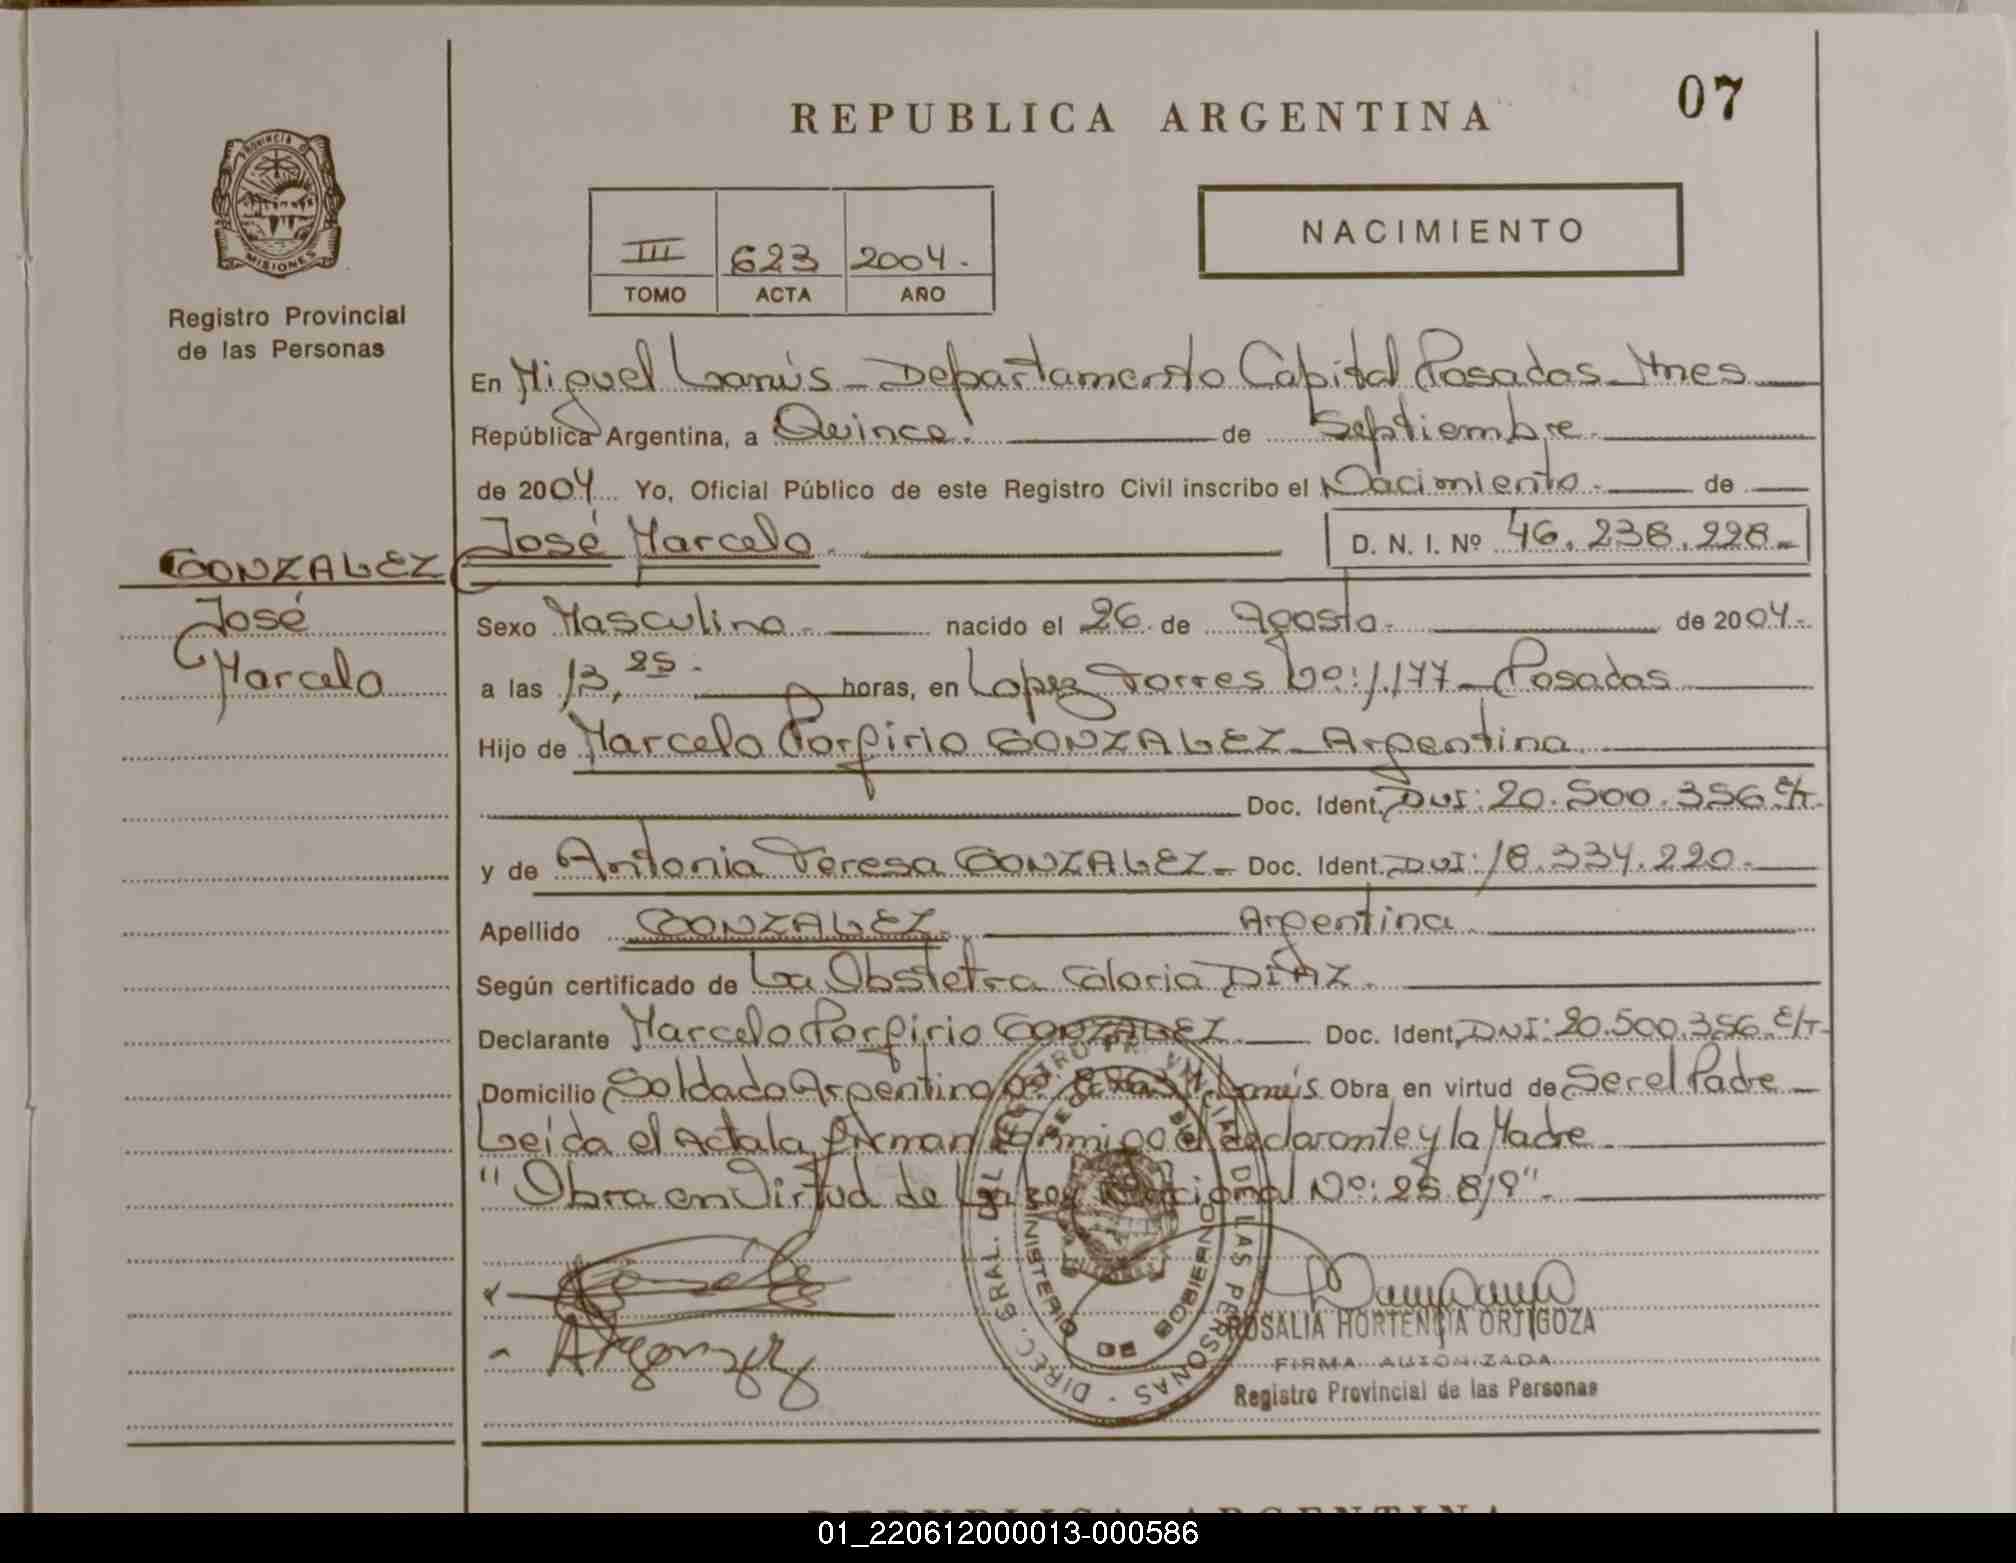 REPUBLICA ARGENTINA
07
PROVINCIA DE
MISIONES
Registro Provincial
de las Personas
III 623 2004.
TOMO ACTA AÑO
NACIMIENTO
En Miguel Lanús _ Departamento Capital Posadas _ Mnes
República Argentina, a Quince. de Septiembre.
de 2004 Yo, Oficial Público de este Registro Civil inscribo el Nacimiento. de
José Marcelo. D. N. I. Nº 46.238.228._
GONZALEZ
José
Marcelo
Sexo Masculino. nacido el 26 de Agosto. de 2004.
a las 13,25. horas, en Lopez Torres Nº: 1.177 _ Posadas
Hijo de Marcelo Porfirio GONZALEZ _ Argentina
Doc. Ident. DNI: 20.500.356 E/T.
y de Antonia Teresa GONZALEZ _ Doc. Ident. DNI: 18.334.220.
Apellido GONZALEZ. Argentina
Según certificado de La Obstetra Gloria DIAZ.
Declarante Marcelo Porfirio GONZALEZ. Doc. Ident. DNI: 20.500.356 E/T
Domicilio Soldado Argentino Lanús Obra en virtud de Ser el Padre _
Leida el Acta la firman conmigo el declarante y la Madre.
"Obra en Virtud de La Ley Nacional Nº: 25.819".
DIREC. GRAL. DEL REGISTRO PROVINCIAL DE LAS PERSONAS
MINISTERIO DE GOBIERNO
ROSALIA HORTENCIA ORTIGOZA
FIRMA AUTORIZADA
Registro Provincial de las Personas
REPUBLICA ARGENTINA
01_220612000013-000586